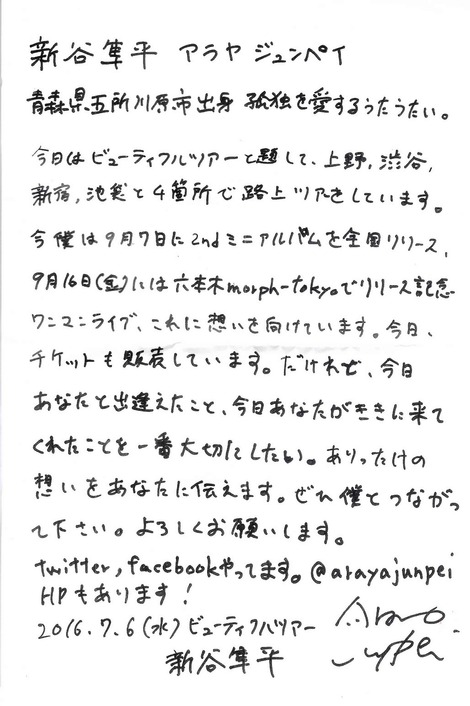 新谷隼平 アラヤ ジュンペイ
青森県五所川原市出身 孤独を愛するうたうたい。
今日はビューティフルツアーと題して、上野,渋谷,
新宿,池袋と4箇所で路上ツアーをしています。
今僕は9月7日に2ndミニアルバムを全国リリース、
9月16日(金)には六本木morph-tokyoでリリース記念
ワンマンライブ、これに想いを向けています。今日、
チケットも販売しています。だけれど、今日
あなたと出逢えたこと、今日あなたがききに来て
くれたことを一番大切にしたい。ありったけの
想いをあなたに伝えます。ぜひ僕とつながっ
て下さい。よろしくお願いします。
twitter,facebookやってます。@arayajunpei
HPもあります!
2016.7.6(水)ビューティフルツアー
新谷隼平